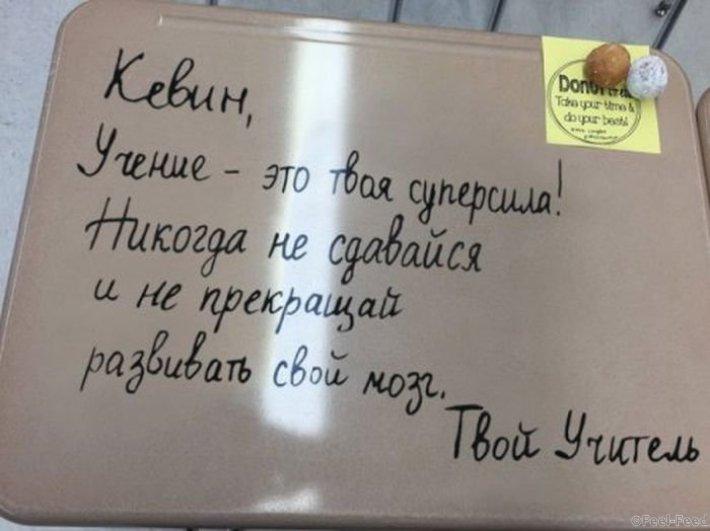 Кевин,
Учение - это твоя суперсила!
Никогда не сдавайся
и не прекращай
развивать свой мозг.
Твой Учитель
Take your time &
do your best!
©Feel-Feed